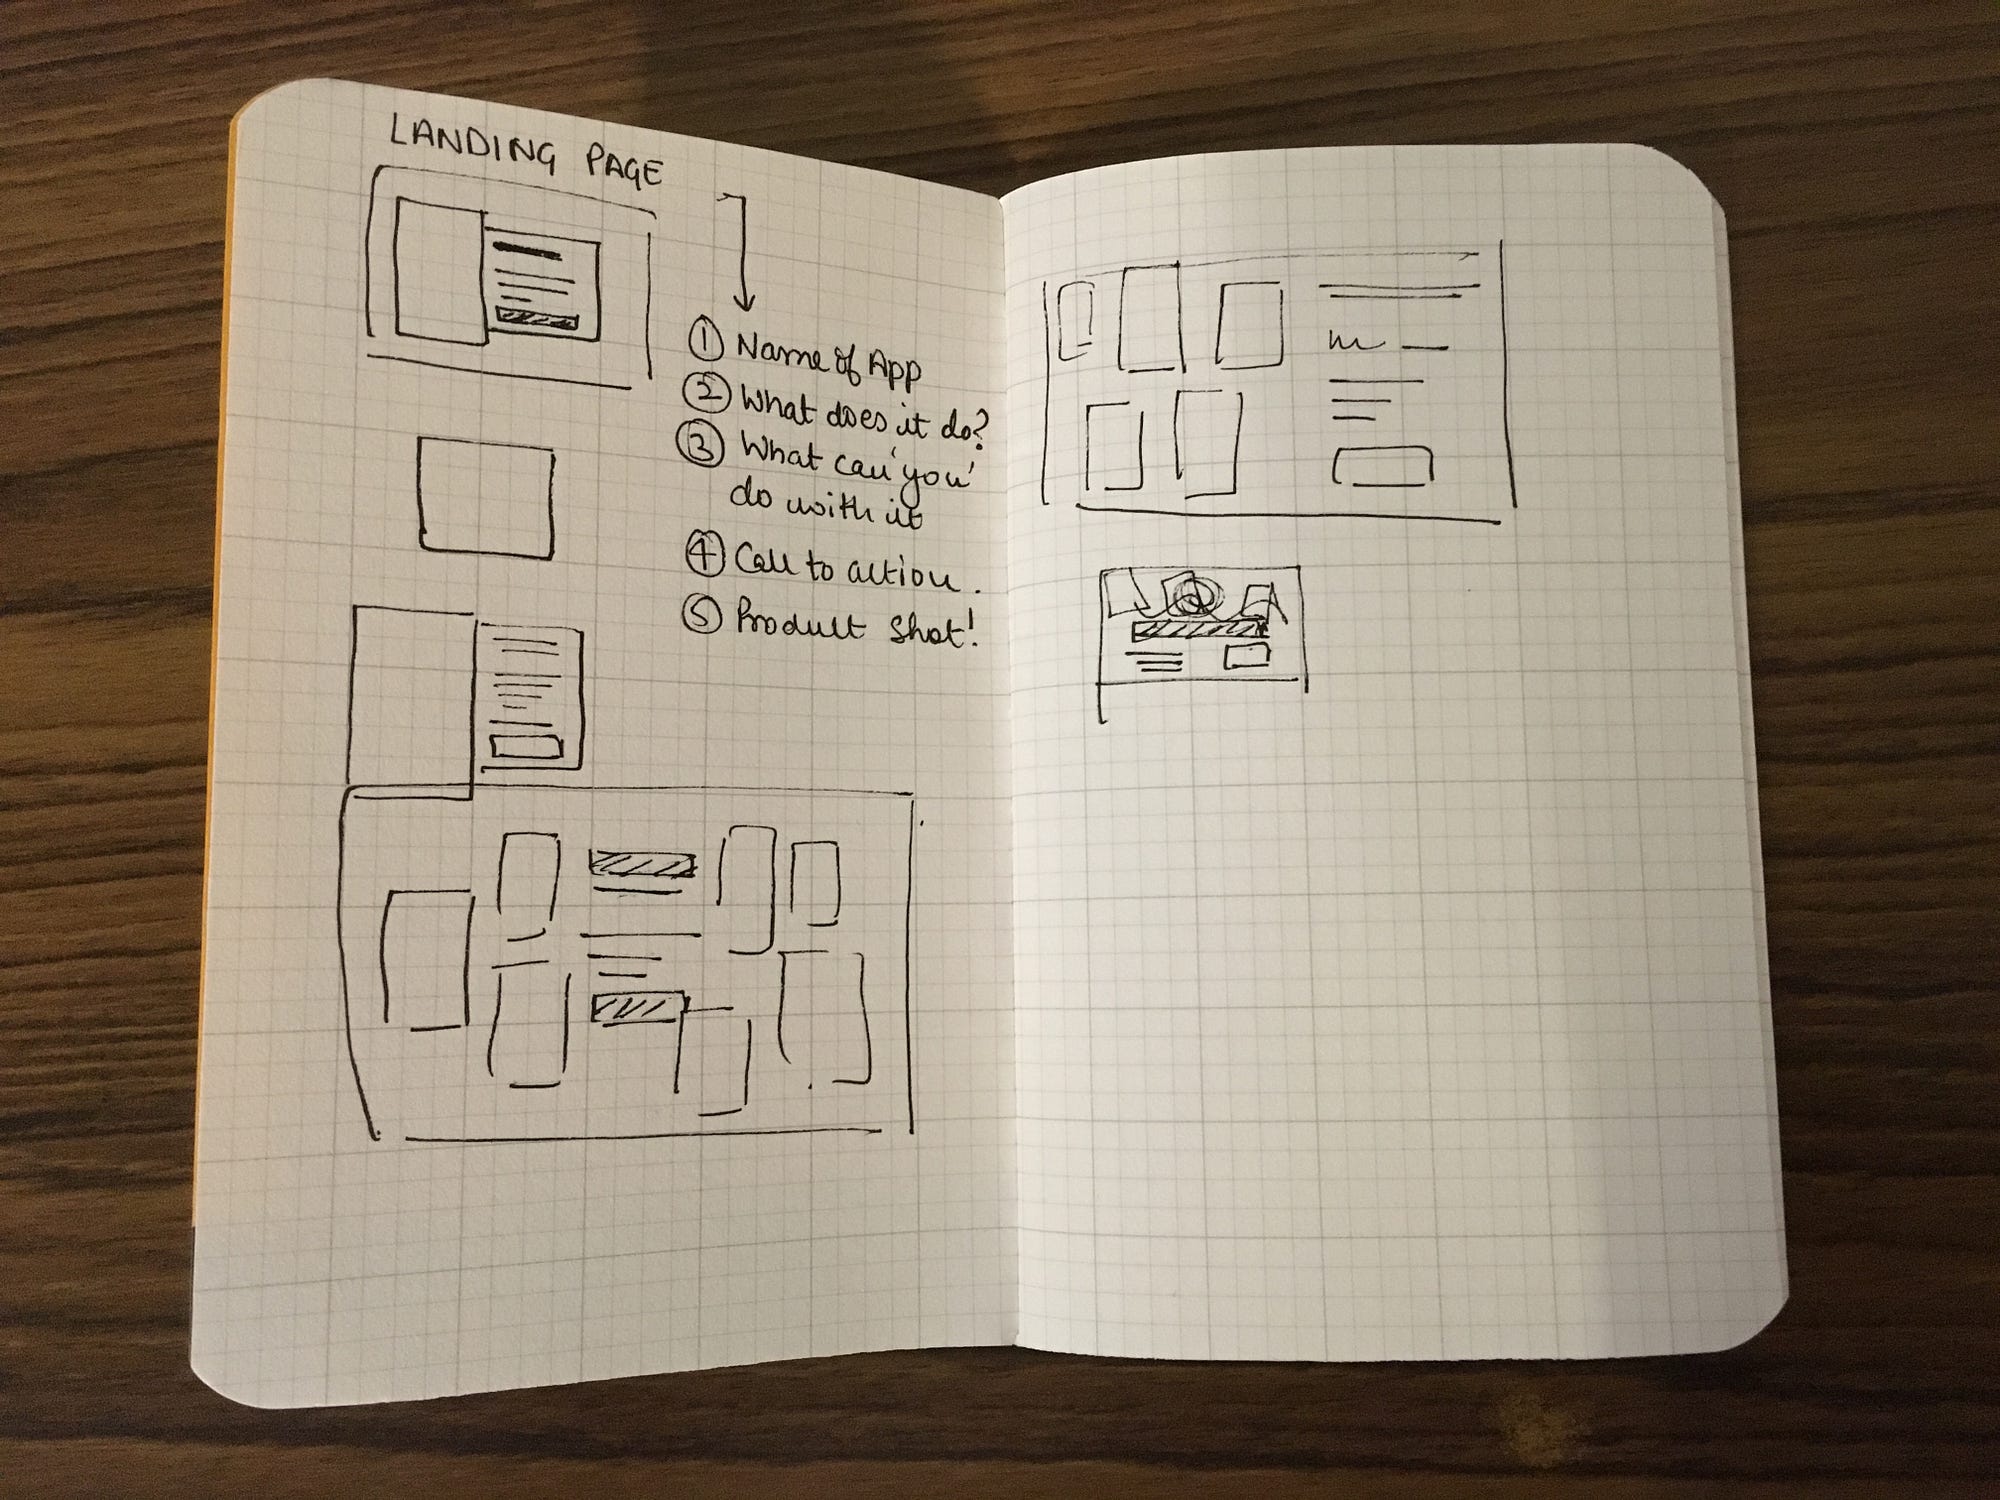 LANDING PAGE
① Name of App
② What does it do?
③ What can 'you'
do with it
④ Call to action.
⑤ Product shot!